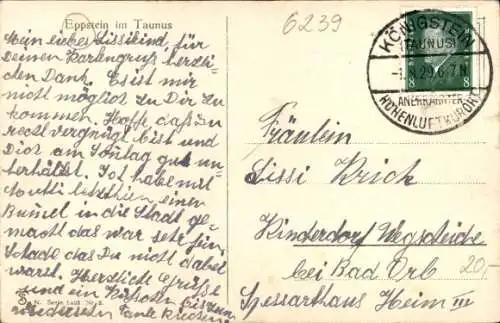 Eppstein im Taunus
6239
Mein liebes Lissikind, für
Deinen Kartengruß herzli-
chen Dank. Es ist mir
nicht möglich zu Dir zu
kommen. Hoffe, daß Du
recht vergnügt bist und
Dich am Sonntag gut un-
terhältst. Ich habe mit
letzthin einen
Bummel in die Stadt ge-
macht das war sehr fein
Schade das Du nicht dabei
warst. Herzliche Grüße
und ein Küßchen bis zum
Wiedersehen Tante
N. Serie Nr. 2.
KÖNIGSTEIN
(TAUNUS)
-1.8.29.6-7N
ANERKANNTER
HÖHENLUFTKURORT
8
Fräulein
Lissi Krick
Kinderdorf Wegscheide
bei Bad Orb
Spessarthaus Heim III
20,-